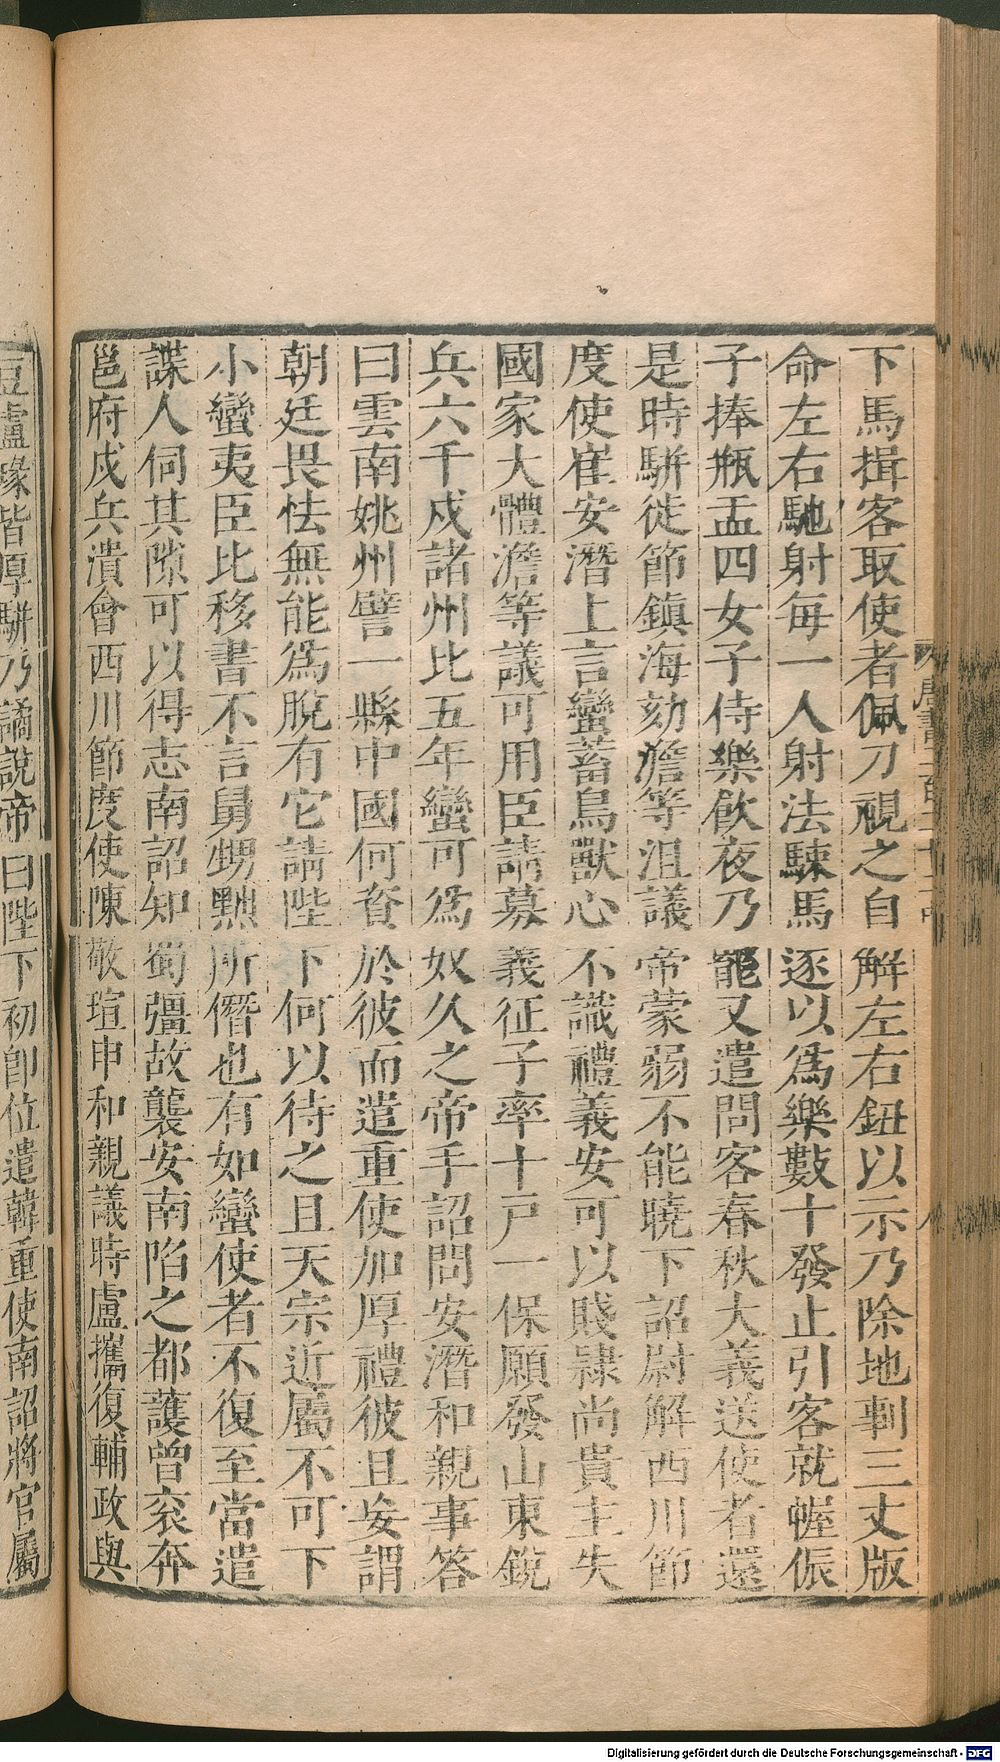 下馬揖客取使者佩刀視之自解左右鈕以示乃除地剚三丈版
命左右馳射每一人射法騋馬逐以爲樂數十發止引客就幄侲
子捧瓶盂四女子侍樂飮夜乃罷又遣問客春秋大義送使者還
是時駢徙節鎮海劾澹等沮議帝蒙弱不能曉下詔尉解西川節
度使崔安潛上言蠻蓄鳥獸心不識禮義安可以賤隷尚貴主失
國家大體澹等議可用臣請募義征子率十戸一保願發山東銳
兵六千戍諸州比五年蠻可爲奴久之帝手詔問安潛和親事答
曰雲南姚州譬一縣中國何資於彼而遣重使加厚禮彼且妄謂
朝廷畏怯無能爲脫有它請陛下何以待之且天宗近屬不可下
小蠻夷臣比移書不言舅甥黜所僭也有如蠻使者不復至當遣
諜人伺其隙可以得志南詔知蜀彊故襲安南陷之都護曾衮奔
邕府戍兵潰會西川節度使陳敬瑄申和親議時盧攜復輔政與
豆盧瑑皆厚駢乃譎說帝曰陛下初卽位遣韓重使南詔將官屬
唐書二百二十二中
八
Digitalisierung gefördert durch die Deutsche Forschungsgemeinschaft - DFG